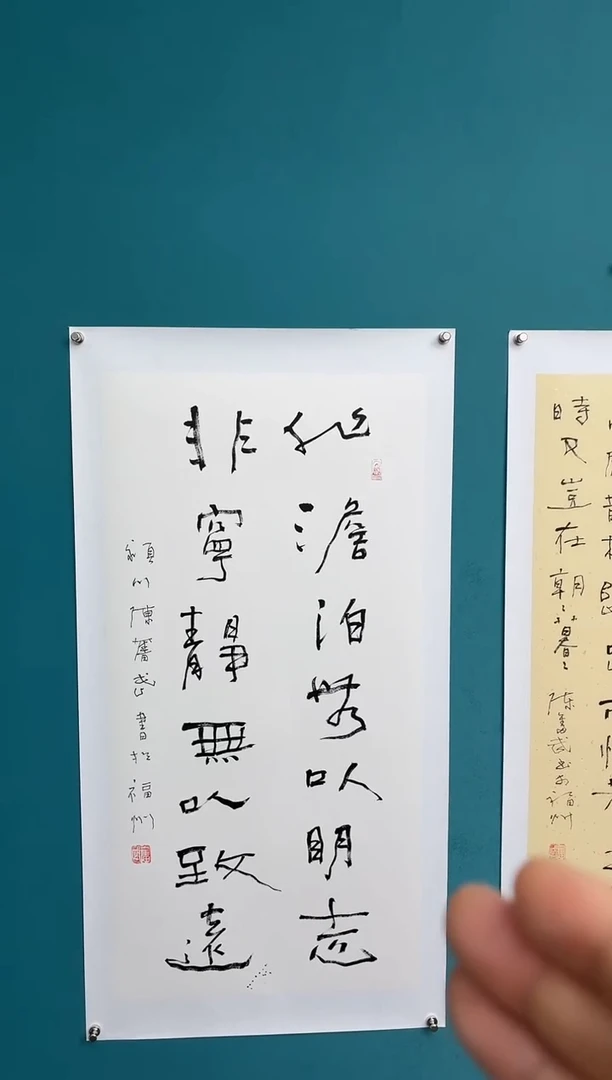 非澹泊無以明志
非寧靜無以致遠
潁川陳奮武書於福州
時又豈在朝〻暮〻
陈奮武書於福州